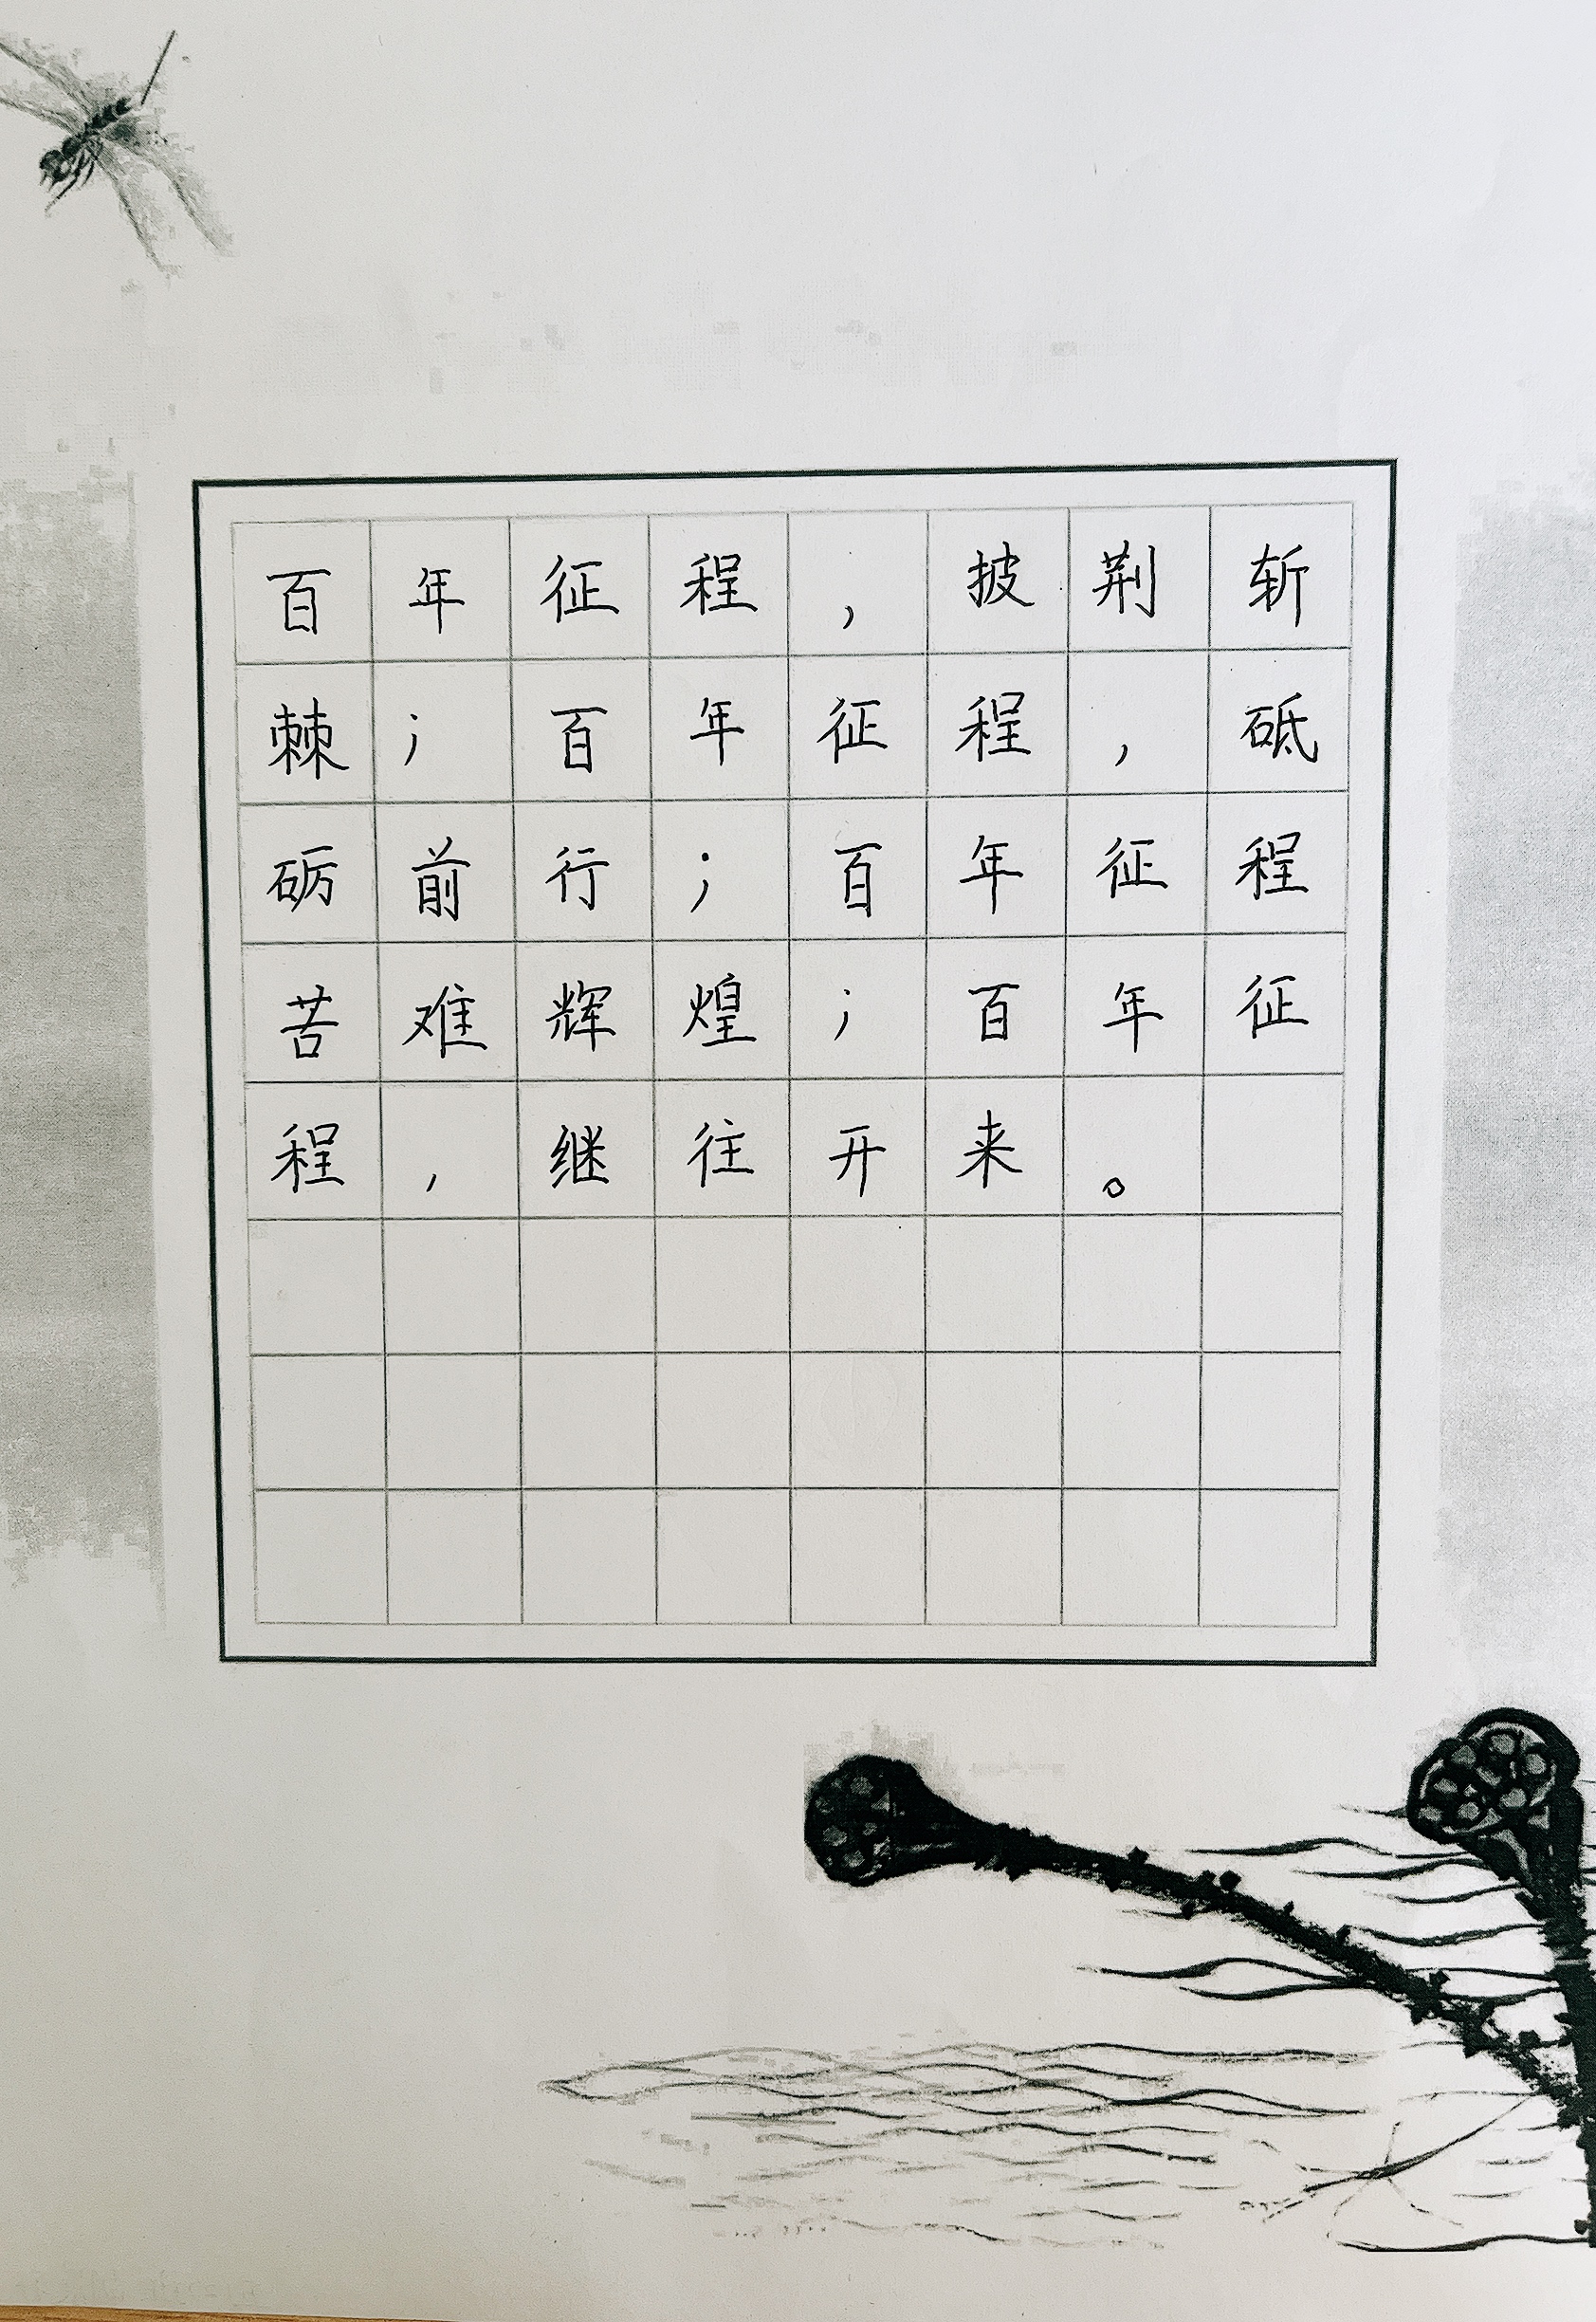 百年征程，披荆斩
棘；百年征程，砥
砺前行；百年征程
苦难辉煌；百年征
程，继往开来。